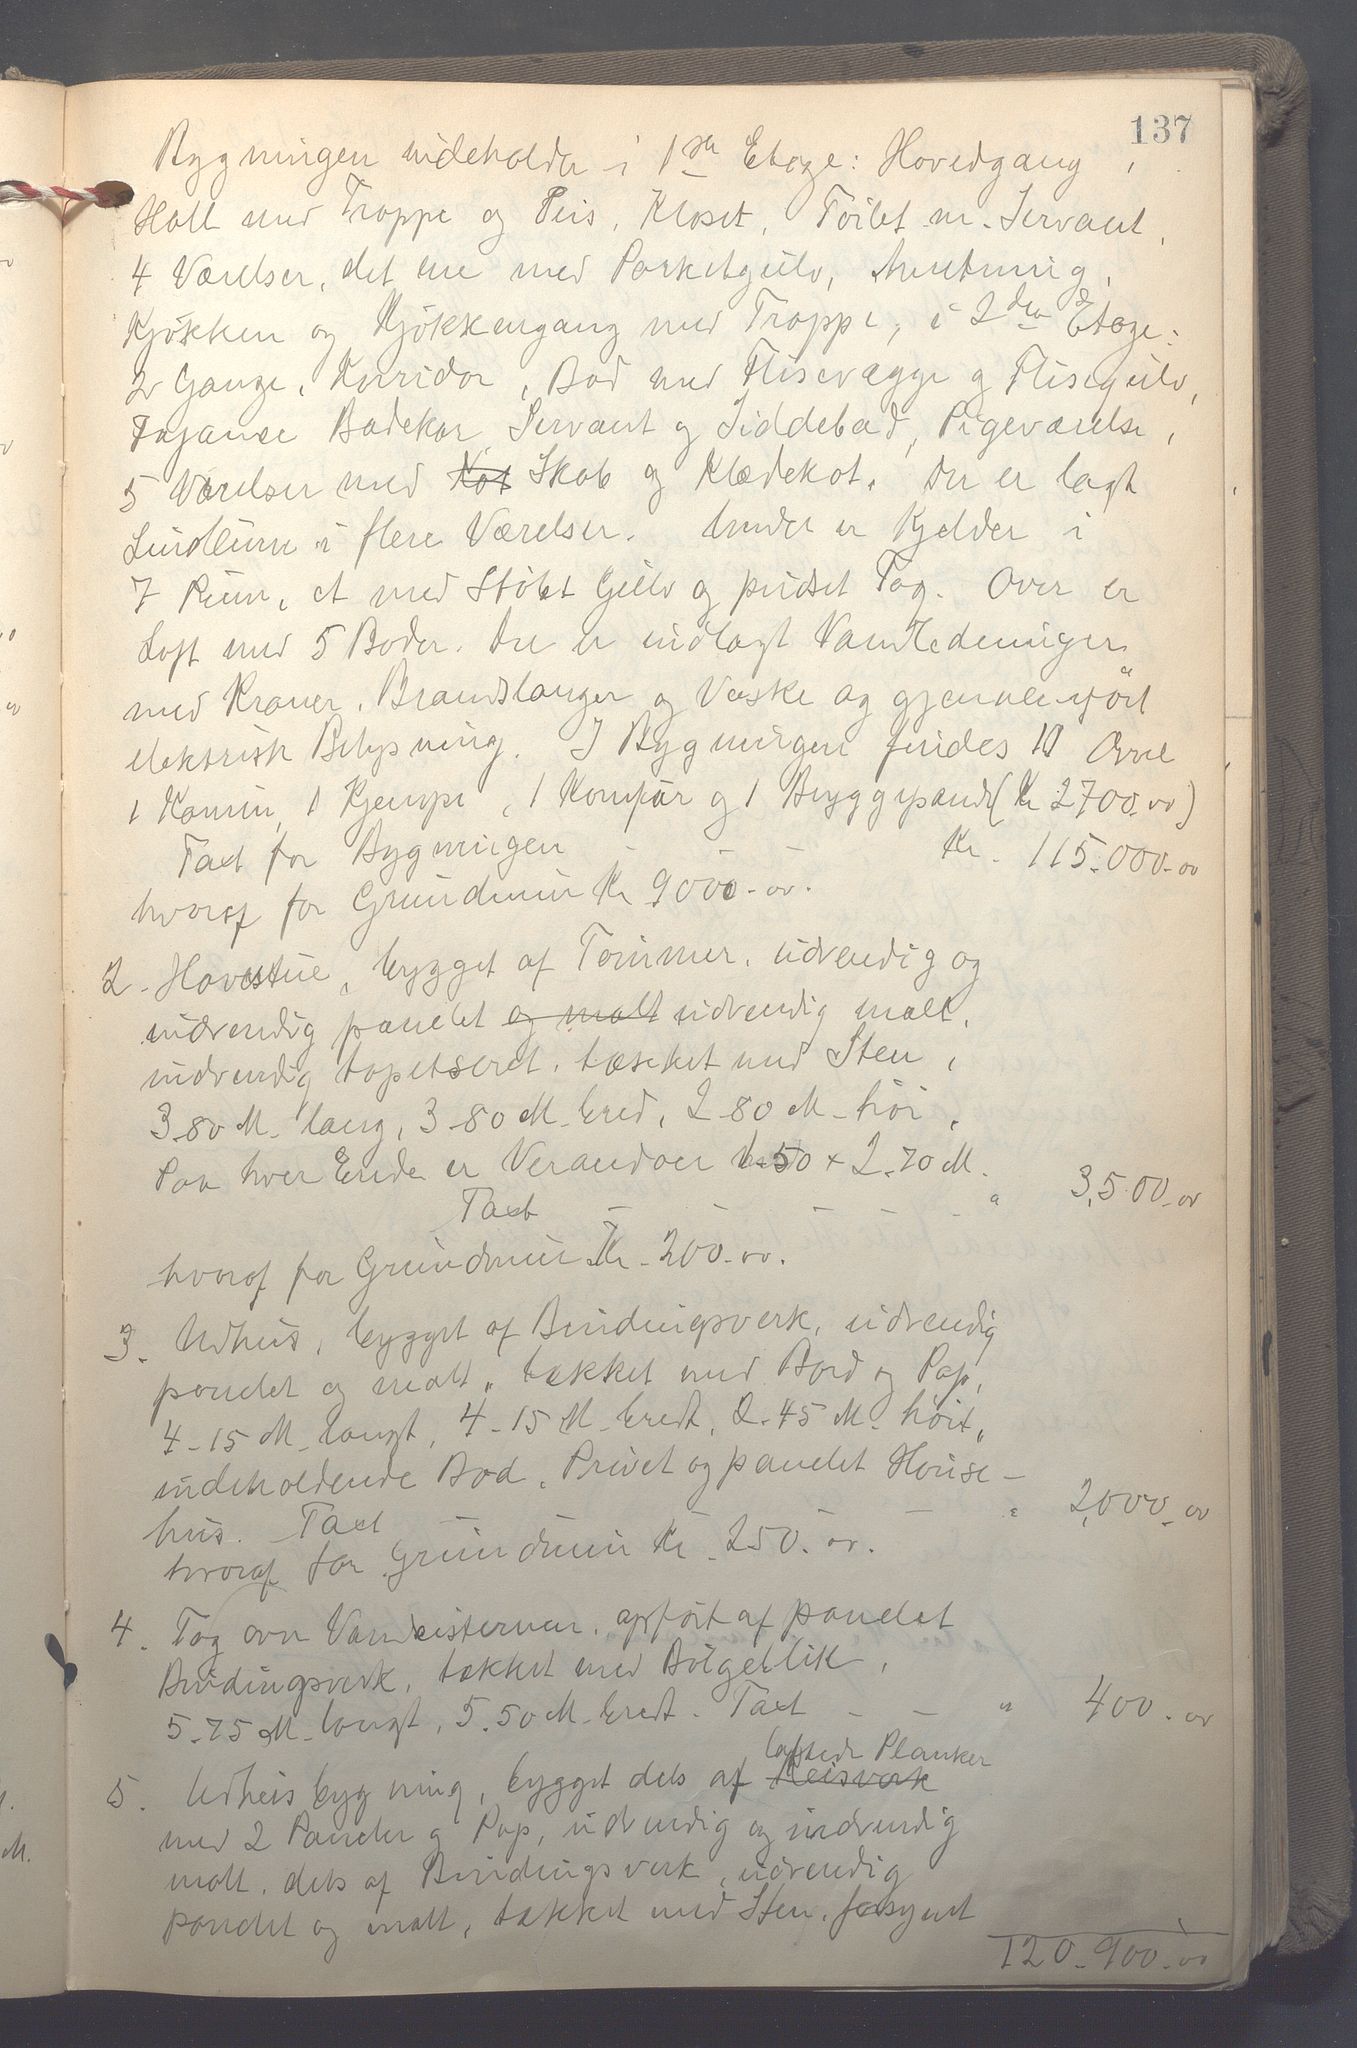 137
Bygningen indeholder i 1ste Etage: Hovedgang,
Hall med Trappe og Peis, Kloset, Toilet m. Servant,
4 Værelser, det ene med Parketgulv, Anretning,
Kjøkken og Kjøkkengang med Trappe, i 2den Etage:
2 Gange, Korridor, Bad med Flisevægge og Flisegulv,
Fajance Badekar, Servant og Siddebad, Pigeværelse,
5 Værelser med Kot Skab og Klædekot. Der er lagt
Linoleum i flere Værelser. Under er Kjelder i
7 Rum, et med Støbt Gulv og pudset Tag. Over er
Loft med 5 Boder. Der er indlagt Vandledninger
med Kraner, Brandslanger og Vaske og gjennemført
elektrisk Belysning. I Bygningen findes 10 Ovne
1 Kamin, 1 Kjempe, 1 Komfur og 1 Bryggepande (Kr 2700.00)
Taxt for Bygningen - - - Kr. 115.000.00
hvoraf for Grundmur Kr 9000.00.
2. Havestue, bygget af Tømmer, udvendig og
indvendig panelet og malt udvendig malt,
indvendig tapetseret, tækket med Sten,
3.80 M. lang, 3.80 M. bred, 2.80 M. høi.
Paa hver Ende er Verandaer 1.50 x 2.70 M.
Taxt - - - - - " 3,500.00
hvoraf for Grundmur Kr. 200.00.
3. Udhus, bygget af Bindingsverk, udvendig
panelet og malt, tækket med Bord og Pap,
4.15 M. langt, 4.15 M. bredt, 2.45 M. høit,
indeholdende Bod, Privet og panelet Hønse-
hus. Taxt - - - - " 2,000.00
hvoraf for Grundmur Kr. 250.00.
4. Tag over Vandcisternen, opført af panelet
Bindingsverk, tækket med Bølgeblik,
5.75 M. langt, 5.50 M. bredt. Taxt - - " 400.00
laftede Planker
5. Udhusbygning, bygget dels af Reisverk
med 2 Paneler og Pap, udvendig og indvendig
malt, dels af Bindingsverk, udvendig
panelet og malt, tækket med Sten, forsynet
120.900.00